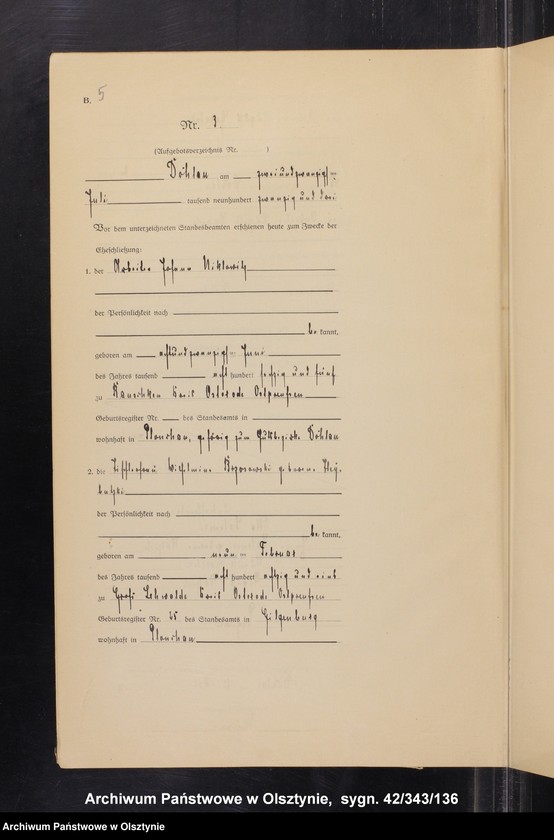 B. 5
Nr. 3.
(Aufgebotsverzeichnis Nr. )
Döhlau am zweiundzwanzigsten
Juli tausend neunhundert zwanzig und drei
Vor dem unterzeichneten Standesbeamten erschienen heute zum Zwecke der
Eheschließung:
1. der Arbeiter Johann
der Persönlichkeit nach
be kannt,
geboren am achtundzwanzigsten Juni
des Jahres tausend acht hundert sechzig und fünf
zu Kreis Osterode Ostpreußen
Geburtsregister Nr. des Standesamts in
wohnhaft in Plonchau, gehörig zum Gutsbezirk Döhlau
2. die Wilhelmine geborene
der Persönlichkeit nach
be kannt,
geboren am neunten Februar
des Jahres tausend acht hundert achtzig und eins
zu Groß Lehwalde Kreis Osterode Ostpreußen
Geburtsregister Nr. 25 des Standesamts in Gilgenburg
wohnhaft in Plonchau
Archiwum Państwowe w Olsztynie, sygn. 42/343/136
Archiwum Państwowe w Olsztynie